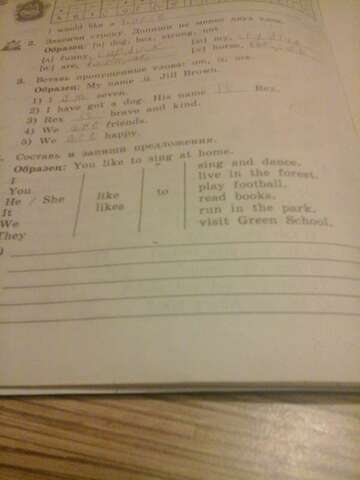 I would like a horse
2. Закончи строку. Допиши не менее двух слов.
Образец: [ɒ] dog, box, strong, not
[ʌ] funny, [aɪ] my,
[ɑː] are, [ɔː] horse,
3. Вставь пропущенные слова: am, is, are.
Образец: My name is Jill Brown.
1) I am seven.
2) I have got a dog. His name is Rex.
3) Rex is brave and kind.
4) We are friends.
5) We are happy.
Составь и запиши предложения.
Образец: You like to sing at home.
I
You
He / She
It
We
They
like
likes
to
sing and dance.
live in the forest.
play football.
read books.
run in the park.
visit Green School.